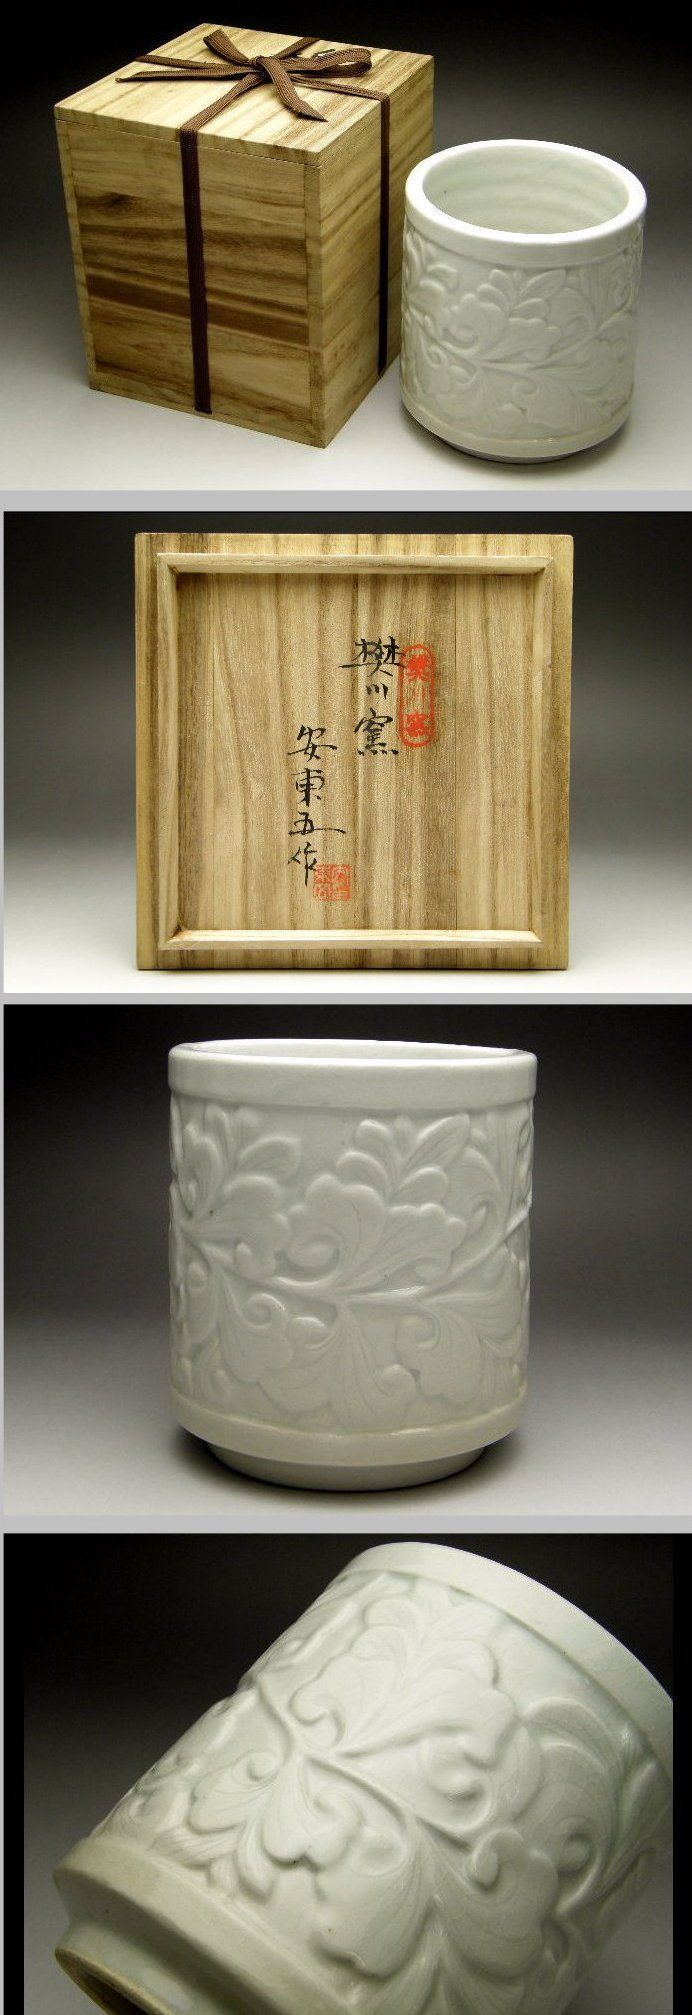 樊川窯
樊川窯
安東五作